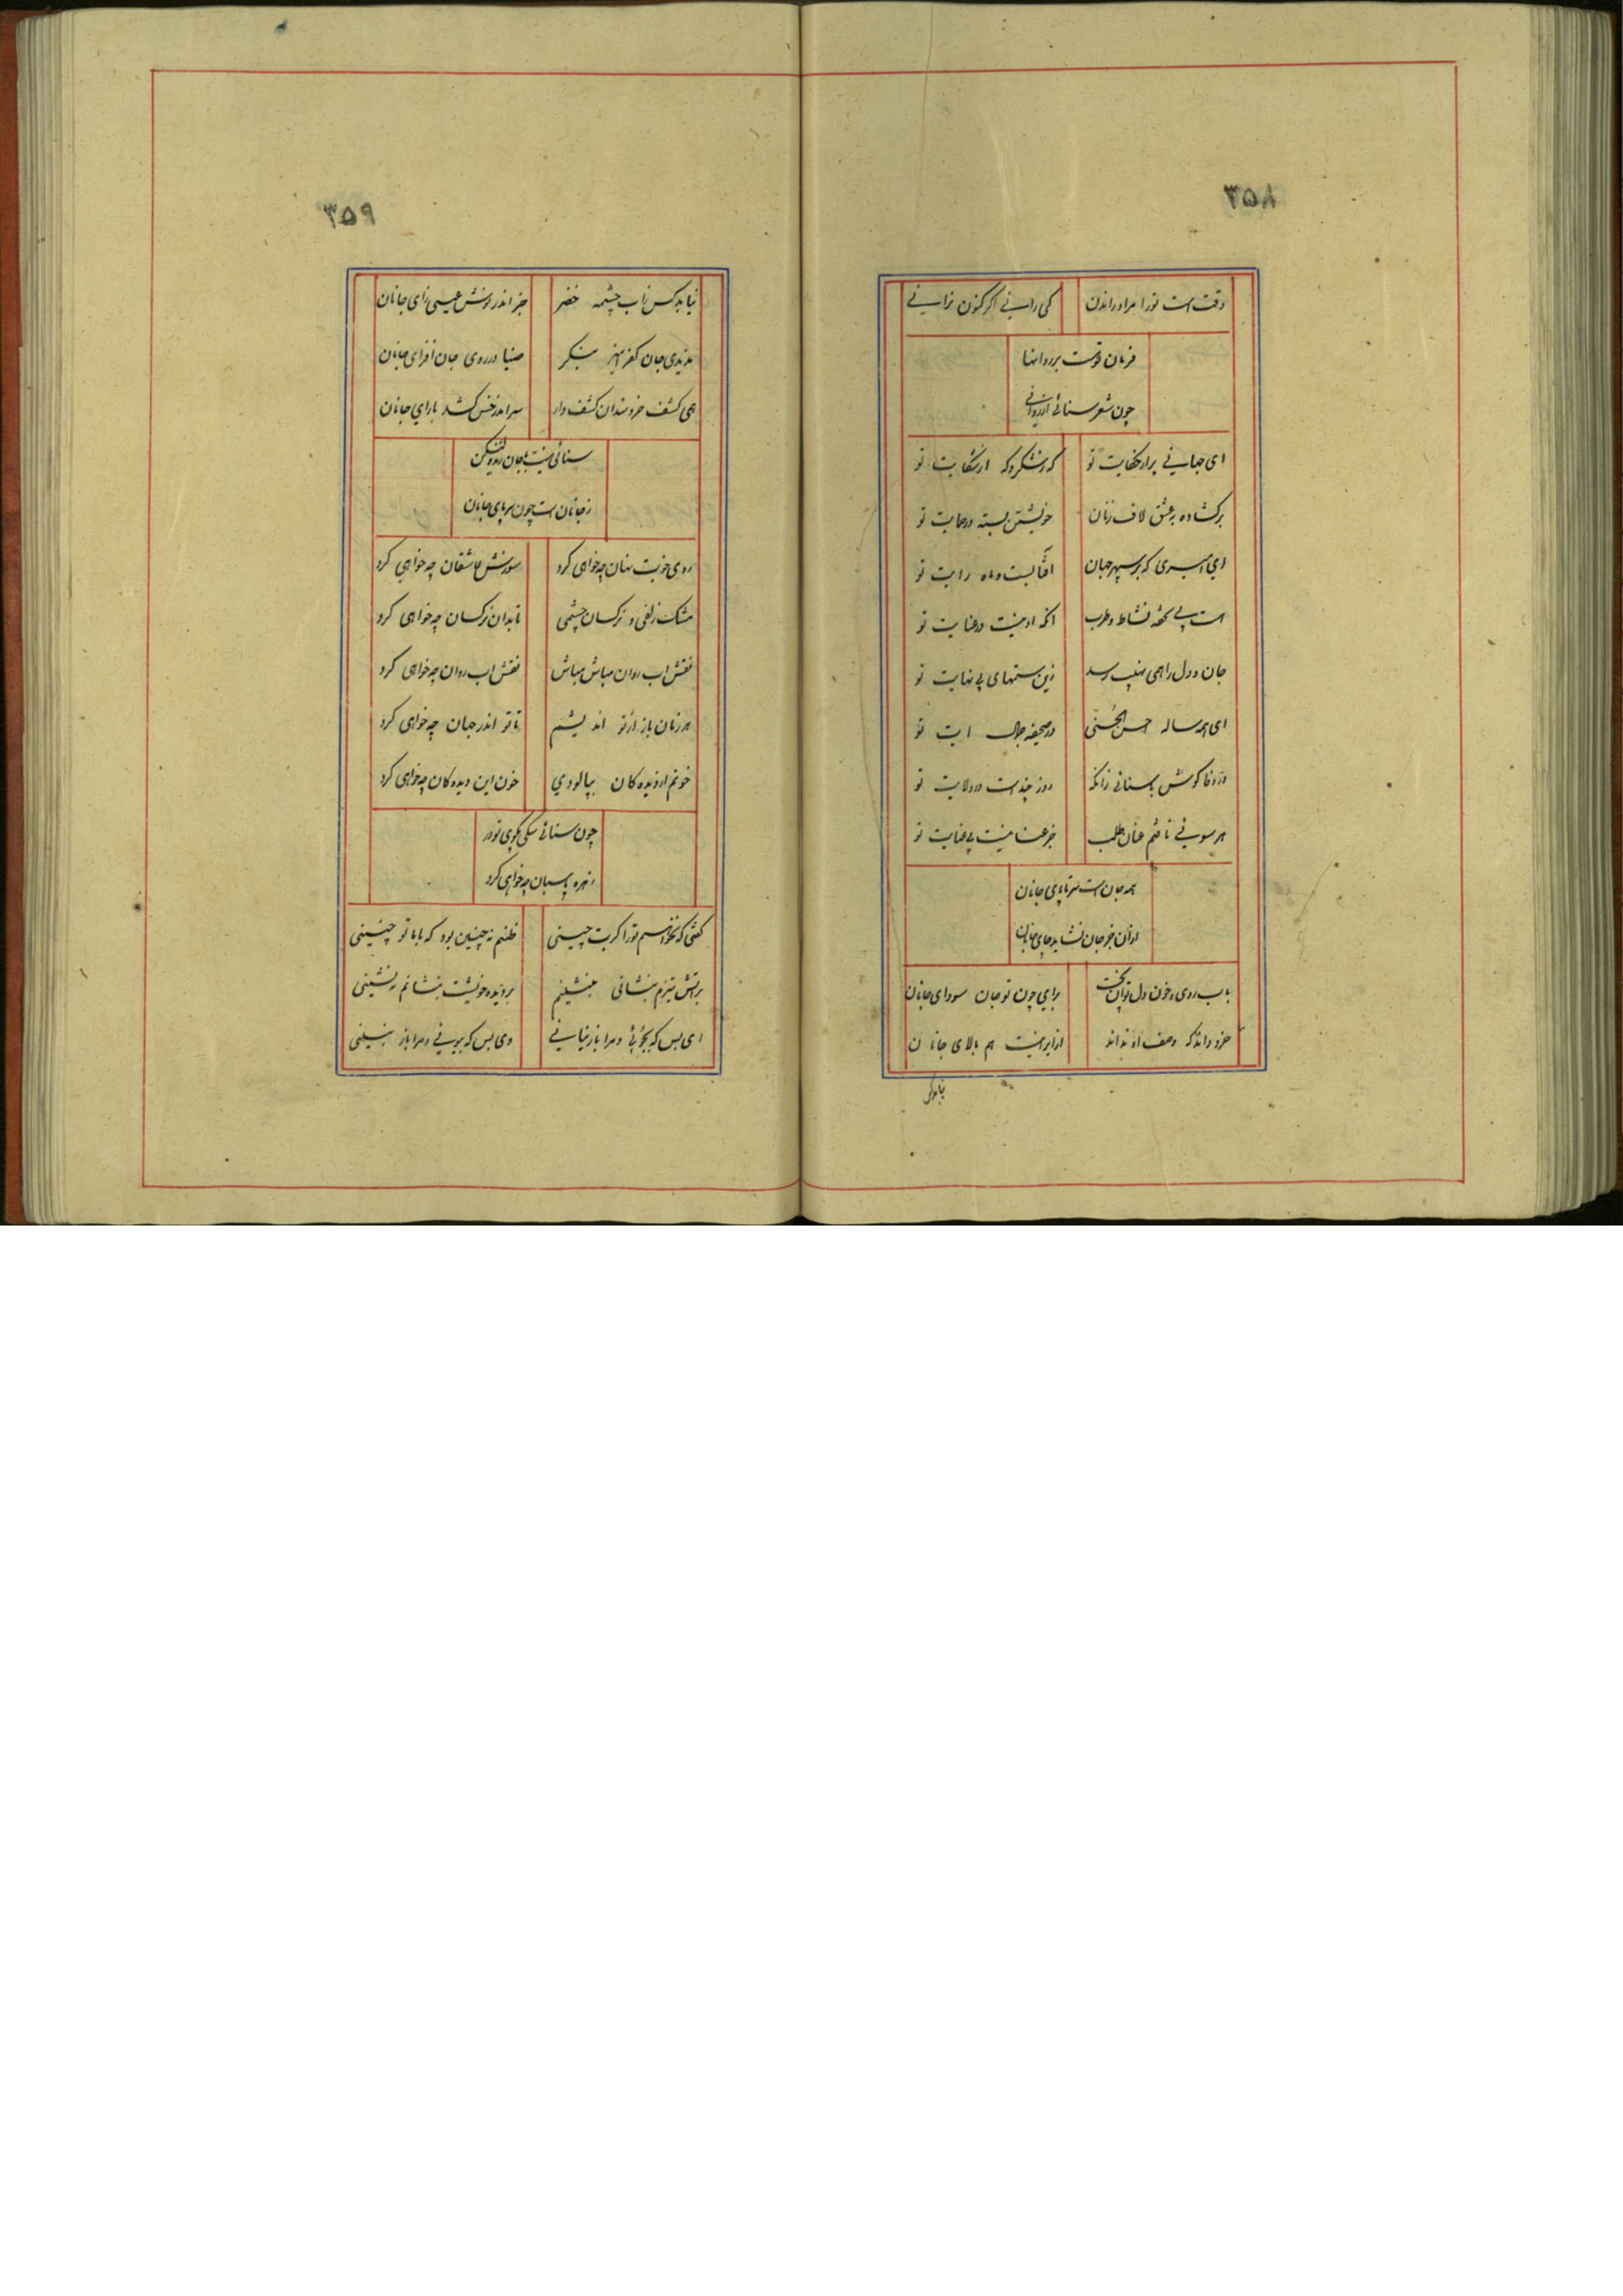 ۳۵۸
وقت است تورا مراد راندن کی رانی اگر کنون نرانی
فرمان تو هست بر روانها
چون شعر سنائی از روانی
ای جهانی پر از حکایت تو گه ز شکر و گه از شکایت تو
برکشاده به عشق لاف زنان خویشتن بسته در حمایت تو
ای امیری که بر سپهر جهان آفتابست و ماه رایت تو
هست بی تحفه نشاط و طرب آنکه او نیست در عنایت تو
جان و دل را همی نهیب رسد زین ستمهای بی نهایت تو
ای همه ساله احسن الحسنی در صحیفه جمال ایت تو
در وفا کوش با سنائی زانکه روز چند است در ولایت تو
هر سویی تافتم عنان طلب جز عنا نیست بی عنایت تو
همه جان است سر تا پای جانان
از آن جز جان نشاید جای جانان
باب روی و خون دل توان ریخت برای چون تو جان سودای جانان
خرد داند که وصف او نداند ازیرا نیست هم بالای جانان
نیابد کس
۳۵۹
نیابد کس ز اب چشمه خضر جز اندر نوش عیسی زای جانان
ندیدی جان کفر امیز بنگر ضیا در روی جان افزای جانان
همی کشف خردمندان کشف وار سر اندر خویش کشد با رای جانان
سنائی نیست با جان زنده لیکن
ز جانان است چون سر پای جانان
روی خوبت نهان چه خواهی کرد شورش عاشقان چه خواهی کرد
مشک زلفی و نرگسان چشمی تا بدان نرگسان چه خواهی کرد
نقش اب روان مباش مباش نقش اب روان چه خواهی کرد
هر زمان باز از تو اندیشم تا تو اندر جهان چه خواهی کرد
خونم از دیده کان بپالودی خون این دیده کان چه خواهی کرد
چون سنائی سگی بکوی تو در
نهره پاسبان چه خواهی کرد
گفتی که نخواهیم تورا گر بت چینی ظنم نه چنین بود که با ما تو چنینی
بر اتش تیزم بنشانی بنشینم بر دیده خویشت بنشانم ننشینی
ای بس که بجوئی و مرا باز نیابی وی بس که بپویی و مرا باز نبینی